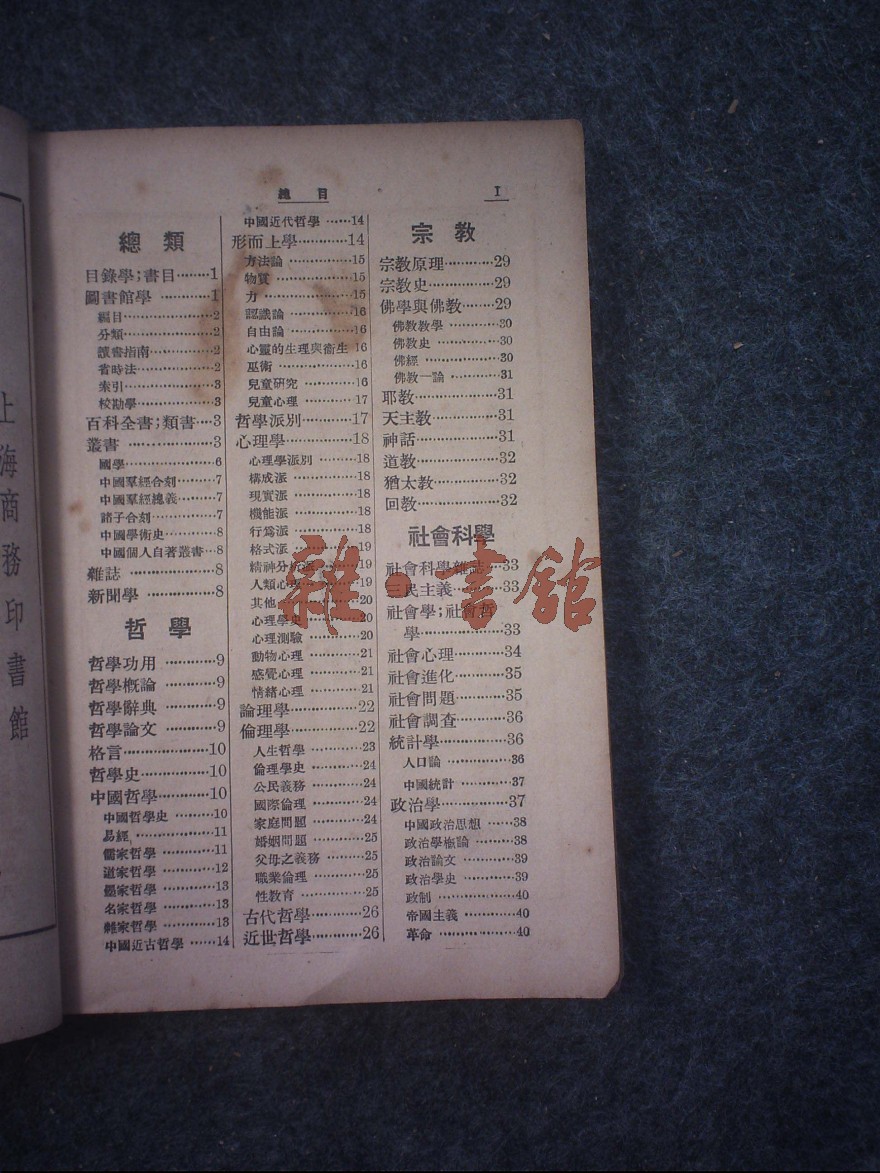 上海商務印書館
總目 I
總類
目錄學;書目·······1
圖書館學··········1
編目··············2
分類··············2
讀書指南··········2
省時法············2
索引··············3
校勘學············3
百科全書;類書···3
叢書··············3
國學··············6
中國羣經合刻·······7
中國羣經總義·······7
諸子合刻··········7
中國學術史········8
中國個人自著叢書···8
雜誌··············8
新聞學············8
哲學
哲學功用··········9
哲學概論··········9
哲學辭典··········9
哲學論文··········9
格言··············10
哲學史············10
中國哲學··········10
中國哲學史········10
易經··············11
儒家哲學··········11
道家哲學··········12
墨家哲學··········13
名家哲學··········13
雜家哲學··········13
中國近古哲學······14
中國近代哲學······14
形而上學··········14
方法論············15
物質··············15
力················15
認識論············16
自由論············16
心靈的生理與衞生 16
巫術··············16
兒童研究··········16
兒童心理··········17
哲學派別··········17
心理學············18
心理學派別········18
構成派············18
現實派············18
機能派············18
行爲派············18
格式派············19
精神分析派········19
人類心理··········19
其他··············20
心理學史··········20
心理測驗··········20
動物心理··········21
感覺心理··········21
情緒心理··········21
論理學············22
倫理學············22
人生哲學··········23
倫理學史··········24
公民義務··········24
國際倫理··········24
家庭問題··········24
婚姻問題··········25
父母之義務········25
職業倫理··········25
性教育············25
古代哲學··········26
近世哲學··········26
宗教
宗教原理··········29
宗教史············29
佛學與佛教········29
佛教教學··········30
佛教史············30
佛經··············30
佛教一論··········31
耶教··············31
天主教············31
神話··············31
道教··············32
猶太教············32
回教··············32
社會科學
社會科學雜誌···33
三民主義··········33
社會學;社會哲
學················33
社會心理··········34
社會進化··········35
社會問題··········35
社會調查··········36
統計學············36
人口論············36
中國統計··········37
政治學············37
中國政治思想······38
政治學概論········38
政治論文··········39
政治學史··········39
政制··············40
帝國主義··········40
革命··············40
雜·書館